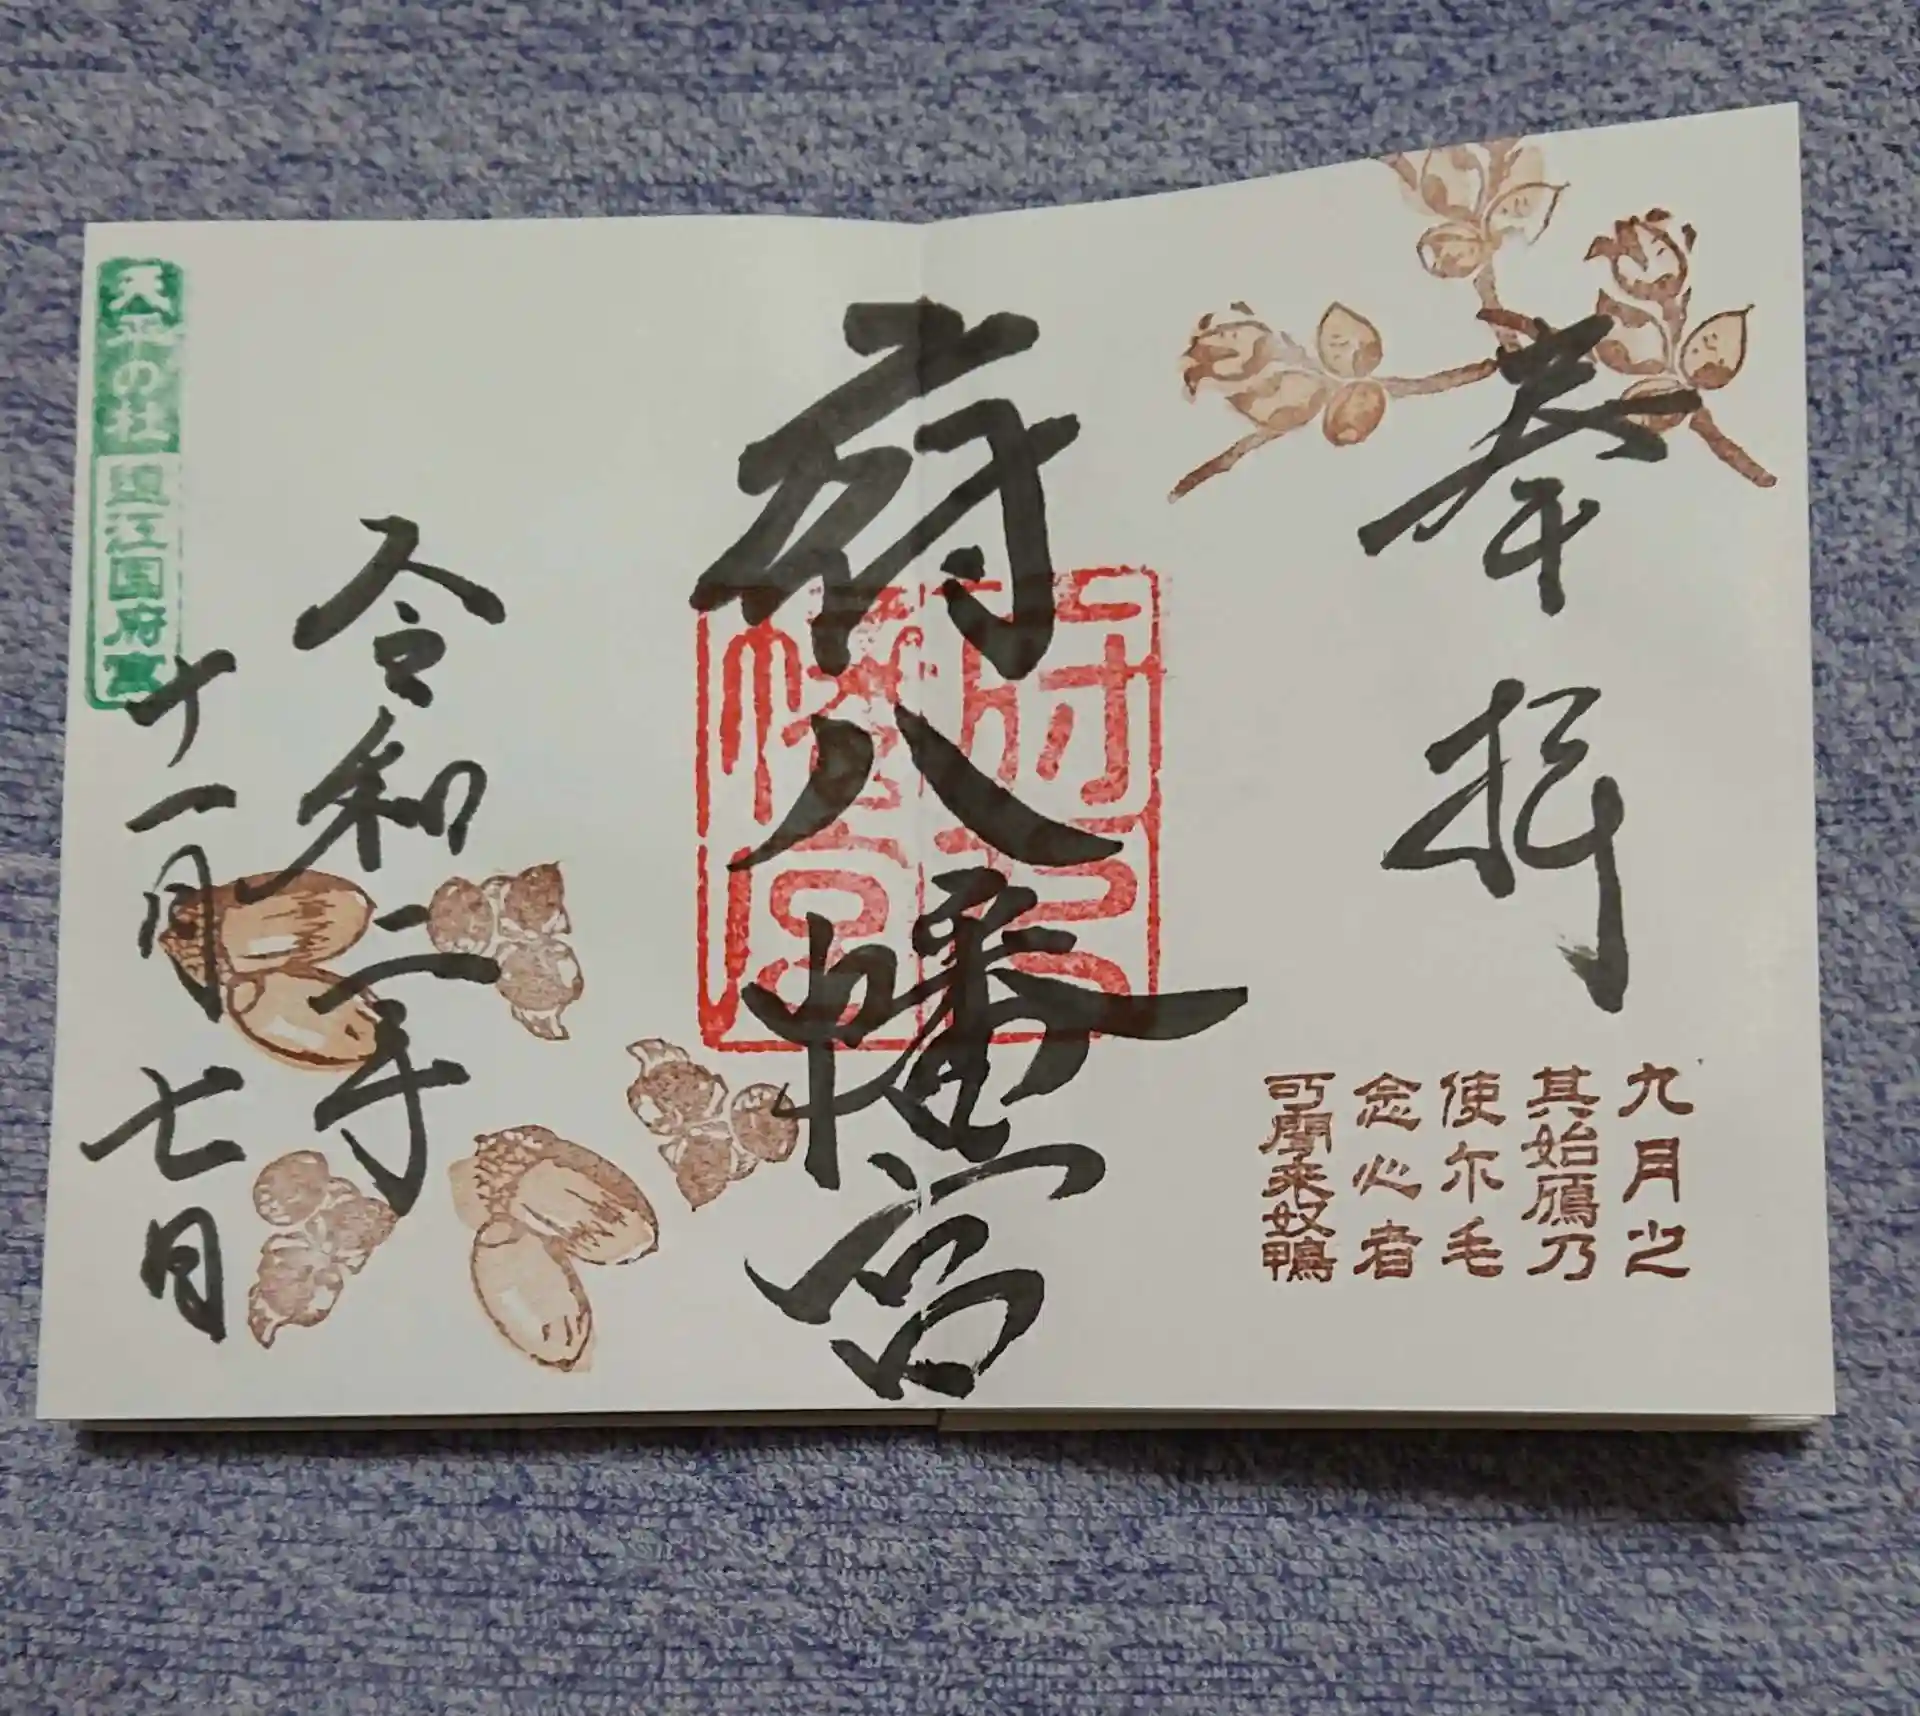 奉拝
九月之
其始鴈乃
使尓毛
念心者
可聞来奴鴨
府八幡宮
府八
幡宮
令和二年
十一月七日
天平の杜
遠江国府宮